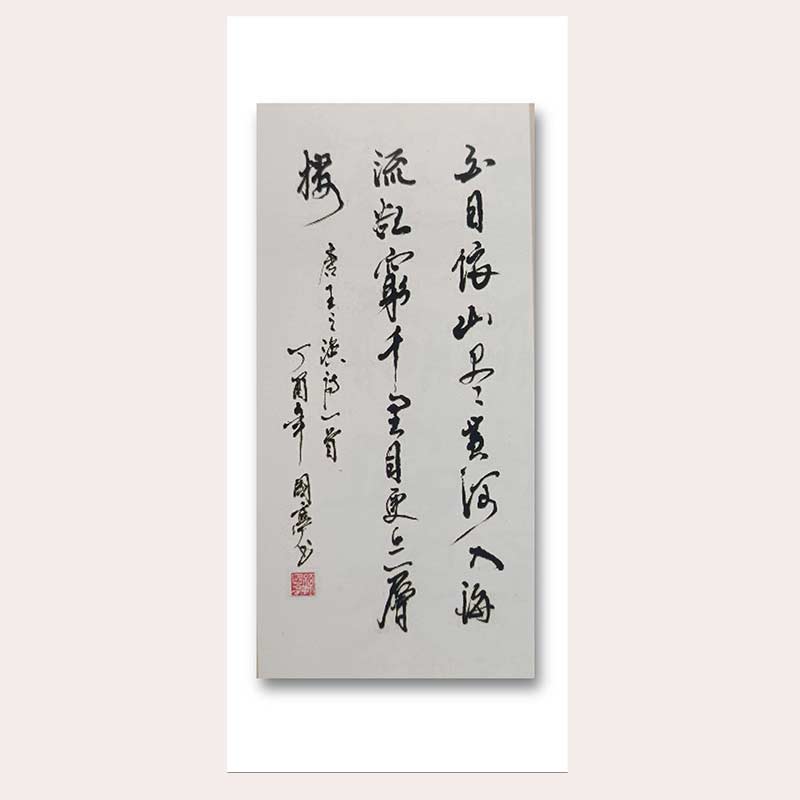 白日依山尽黄河入海
流欲窮千里目更上一層
楼
唐王之渙诗一首
丁酉年 國寧书